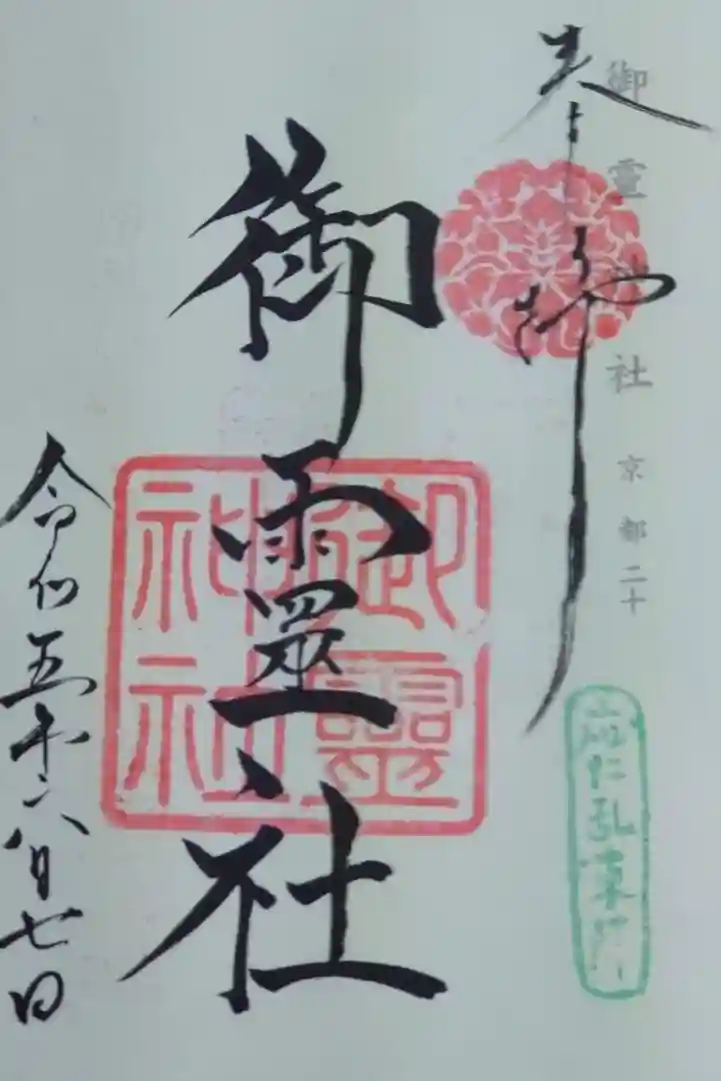 奉拝
御霊神社 京都二十
応仁乱東
御靈社
御靈神社
令和五年六月七日